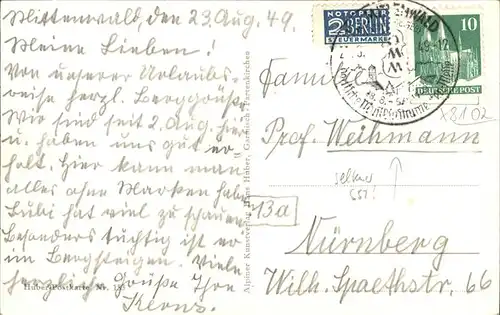 Mittenwald, den 23. Aug. 49.
Meine Lieben!
Von unserer Urlaubs-
reise herzl. Berggrüße.
Wir sind seit 2. Aug. hier
u. haben uns gut er-
holt. Hier kann man
alles ohne Marken haben
Lubi hat viel zu schauen
Besonders tüchtig ist er
im Bergsteigen. Viele
herzliche Grüße Ihre
Kerns.
Huber-Postkarte Nr. 133
Alpiner Kunstverlag Hans Huber, Garmisch-Partenkirchen
NOTOPFER
2 BERLIN
STEUERMARKE
10
DEUTSCHE POST
X8102
Familie
Prof. Weihmann
13a
Nürnberg
Wilh. Spaethstr. 66